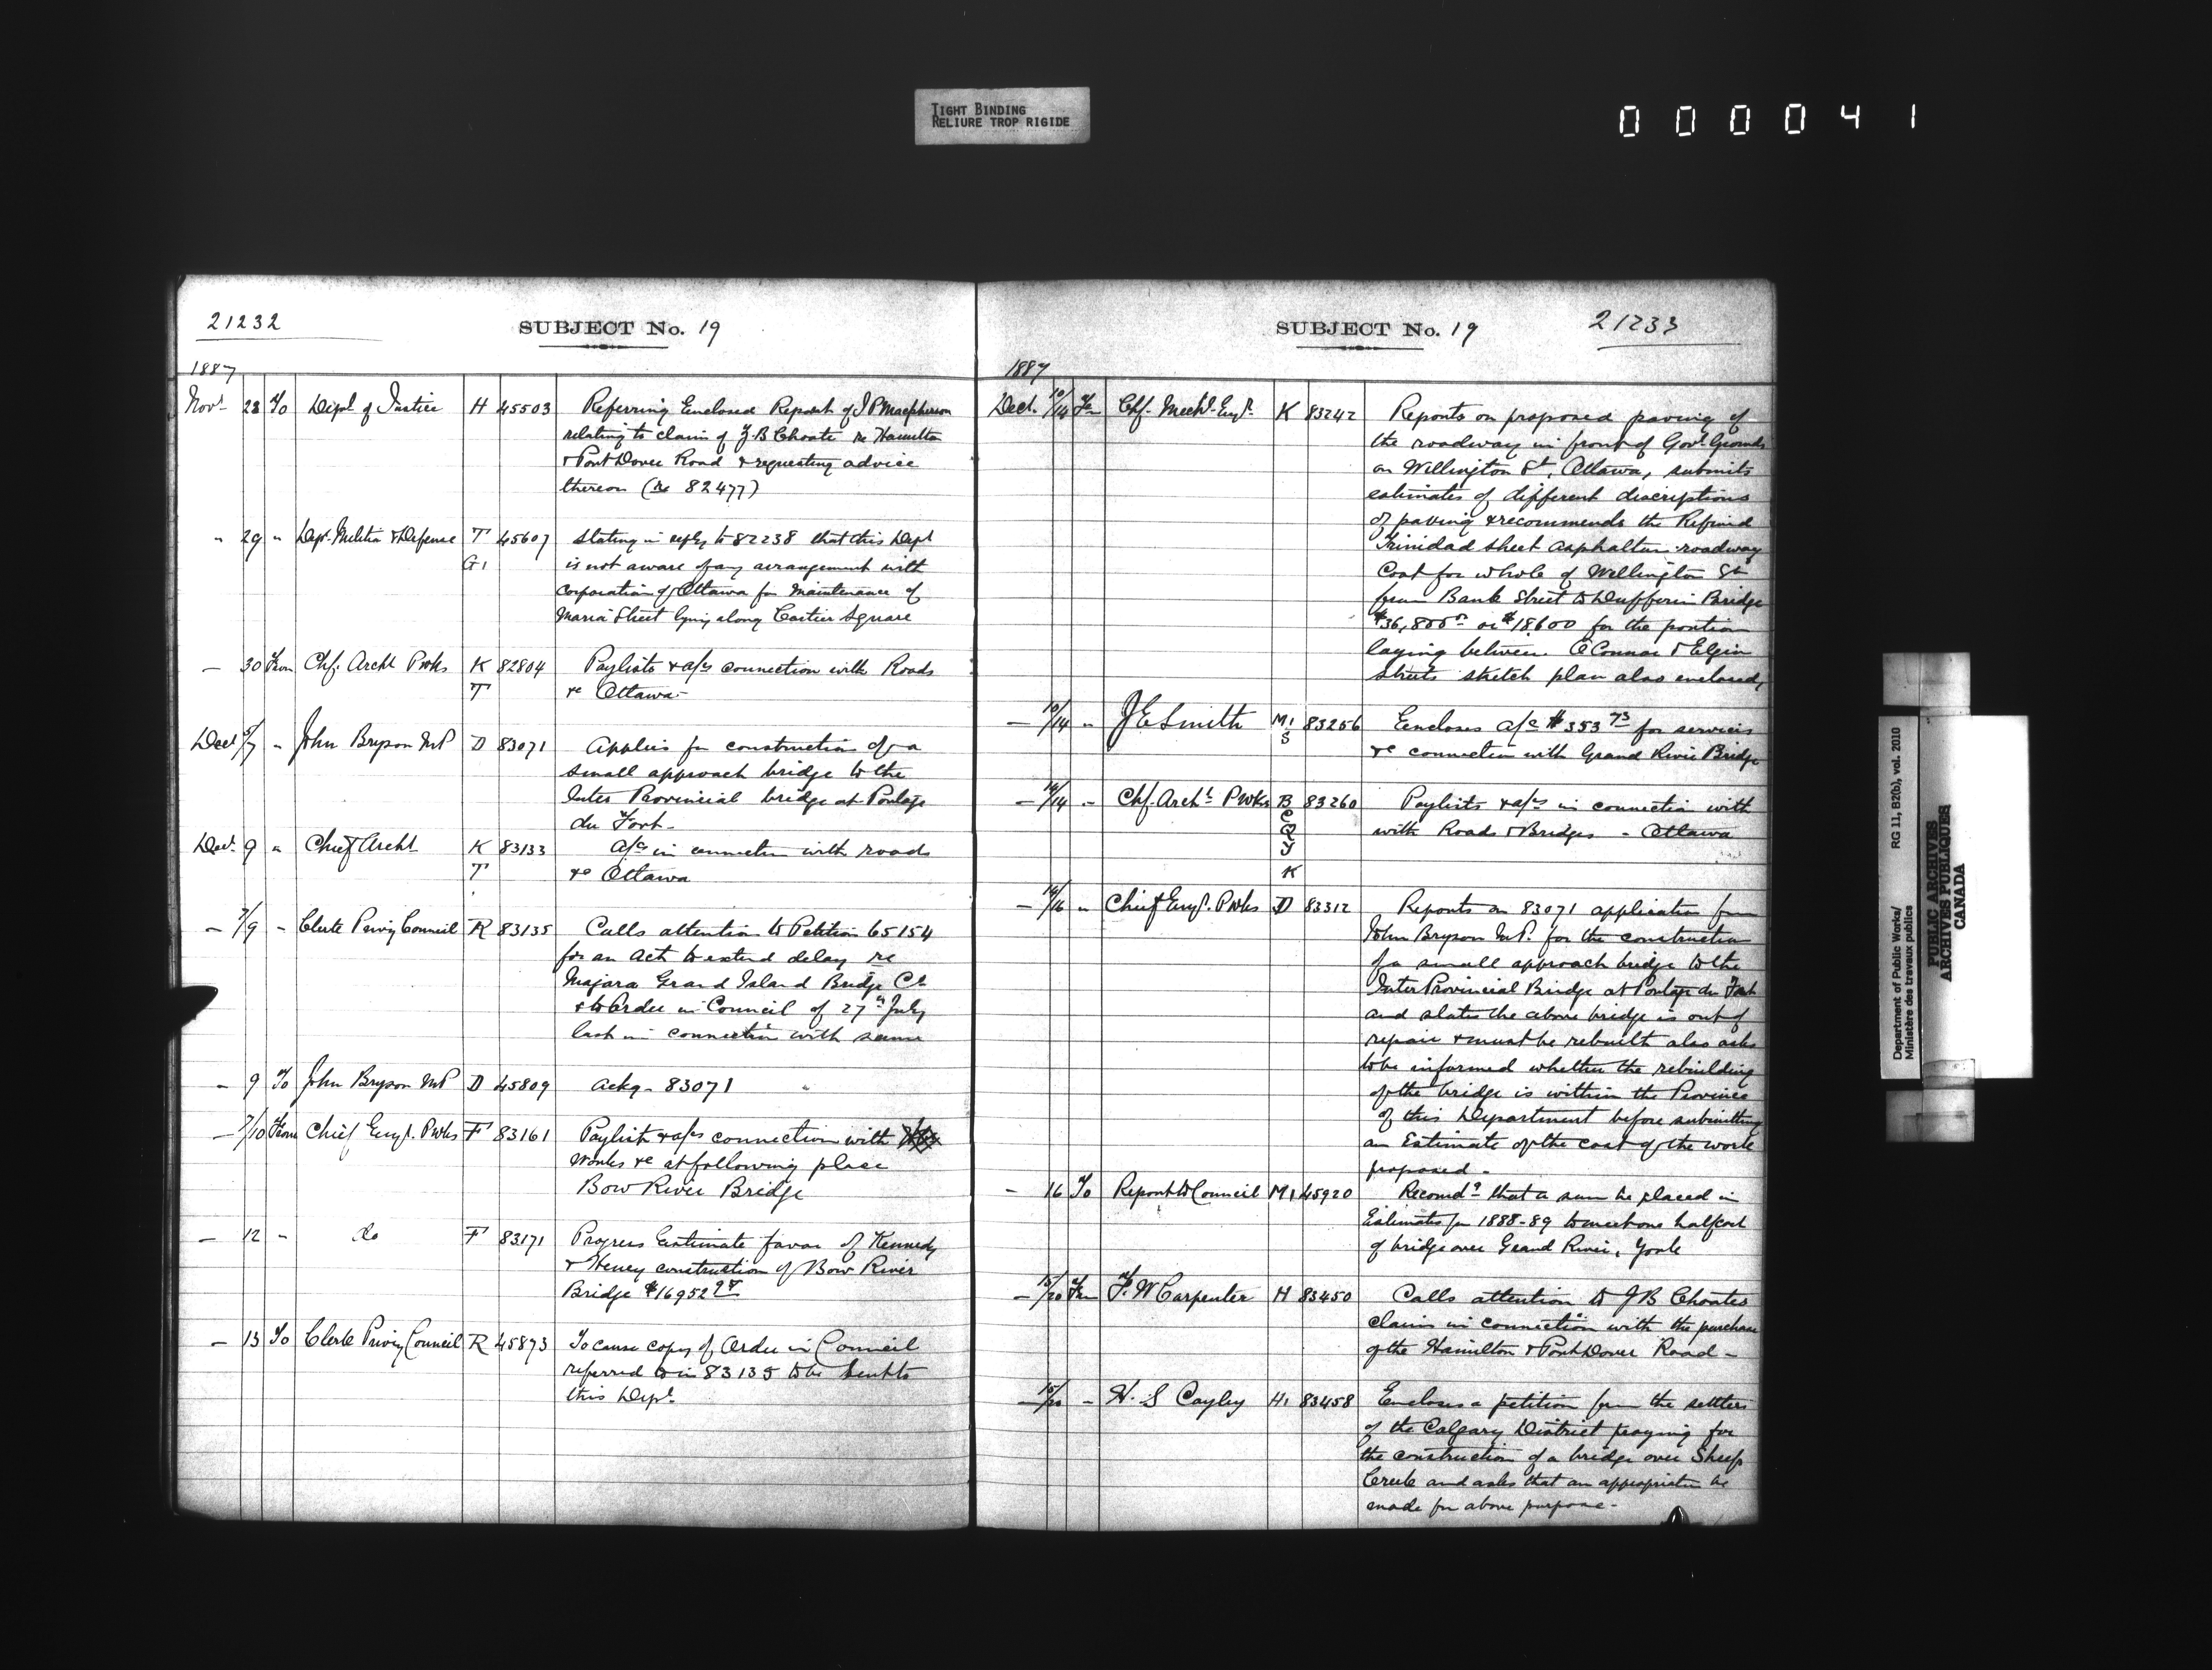 TIGHT BINDING
RELIURE TROP RIGIDE
000041
21232
SUBJECT No. 19
1887
Novr 23 To Dept of Justice H 45503 Referring Enclosed Report of J P Macpherson
relating to claim of J. B Choate re Hamilton
& Port Dover Road & requesting advice
thereon (re 82477)
" 29 " Dept. Militia & Defense T 45607 Stating in reply to 82238 that this Dept
G1 is not aware of any arrangement with
corporation of Ottawa for Maintenance of
Maria Street lying along Cartier Square
— 30 From Chf. Archt Pwks K 82804 Paylists & a/cs connection with Roads
T &c Ottawa -
Decr 5/7 " John Bryson M.P D 83071 Applies for construction of a
small approach bridge to the
Inter Provincial bridge at Portage
du Fort -
Decr. 9 " Chief Archt K 83133 A/cs in connection with roads
T &c Ottawa
— 7/9 " Clerk Privy Council R 83135 Calls attention to Petition 65154
for an act to extend delay re
Niagara Grand Island Bridge Co
& to Order in Council of 27th July
last in connection with same
— 9 To John Bryson M.P D 45809 Ackg - 83071
— 7/10 From Chief Engr. Pwks F 83161 Paylist & a/cs connection with
works &c at following place
Bow River Bridge
— 12 " do F 83171 Progress Estimate favor of Kennedy
& Heney construction of Bow River
Bridge $16952
— 13 To Clerk Privy Council R 45873 To cause copy of Order in Council
referred to in 83135 to be sent to
this Dept.
SUBJECT No. 19
21233
1887
Dect. 10/14 Fm Chf. Mechl. Engr. K 83242 Reports on proposed paving of
the roadway in front of Govt. Grounds
on Wellington St, Ottawa, submits
estimates of different discriptions
of paving & recommends the Refined
Trinidad sheet asphaltum roadway
Cost for whole of Wellington St
from Bank Street to Dufferin Bridge
$36,800 or $18600 for the portion
laying between O'Connor & Elgin
Streets sketch plan also enclosed,
— 10/14 " J E Smith M1 83256 Encloses a/c $353 73 for services
S &c connection with Grand River Bridge
— 14/14 " Chf. Archt Pwks B 83260 Paylists & a/cs in connection with
C with Roads & Bridges - Ottawa
Q
Y
K
— 14/16 " Chief Engr. Pwks D 83312 Reports on 83071 application from
John Bryson M.P. for the construction
of a small approach bridge to the
Inter Provincial Bridge at Portage du Fort
and states the above bridge is out of
repair & must be rebuilt also asks
to be informed whether the rebuilding
of the bridge is within the Province
of this Department before submitting
an Estimate of the cost of the work
proposed -
— 16 To Report to Council M1 45920 Recomdg that a sum be placed in
Estimates for 1888-89 to meet one half cost
of bridge over Grand River, York
— 15/20 Fm F. W Carpenter H 83450 Calls attention to J B Choates
claim in connection with the purchase
of the Hamilton & Port Dover Road -
— 15/20 " H. S Cayley H1 83458 Encloses a petition from the settlers
of the Calgary District praying for
the construction of a bridge over Sheep
Creek and asks that an appropriation be
made for above purpose -
Department of Public Works/
Ministère des travaux publics
RG 11, B2(b), vol. 2010
PUBLIC ARCHIVES
ARCHIVES PUBLIQUES
CANADA